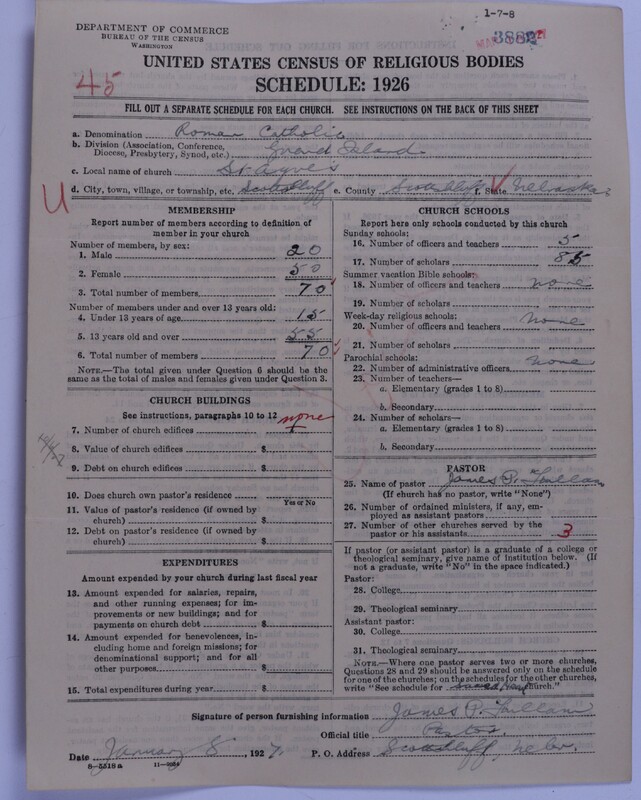 1-7-8
DEPARTMENT OF COMMERCE
BUREAU OF THE CENSUS
WASHINGTON
UNITED STATES CENSUS OF RELIGIOUS BODIES
45
SCHEDULE: 1926
FILL OUT A SEPARATE SCHEDULE FOR EACH CHURCH. SEE INSTRUCTIONS ON THE BACK OF THIS SHEET
a. Denomination Roman Catholic
b. Division (Association, Conference, Diocese, Presbytery, Synod, etc.) Grand Island
c. Local name of church St. Agnes
U
d. City, town, village, or township, etc. Scottsbluff e. County Scottsbluff f. State Nebraska
MEMBERSHIP
Report number of members according to definition of
member in your church
Number of members, by sex:
1. Male 20
2. Female 50
3. Total number of members 70
Number of members under and over 13 years old:
4. Under 13 years of age 15
5. 13 years old and over 55
6. Total number of members 70
NOTE.—The total given under Question 6 should be
same as the total of males and females given under Question 3.
CHURCH BUILDINGS
See instructions, paragraphs 10 to 12
7. Number of church edifices none
8. Value of church edifices $
9. Debt on church edifices $
10. Does church own pastor's residence
Yes or No
11. Value of pastor's residence (if owned by
church) $
12. Debt on pastor's residence (if owned by
church) $
EXPENDITURES
Amount expended by your church during last fiscal year
13. Amount expended for salaries, repairs,
and other running expenses; for im-
provements or new buildings; and for
payments on church debt $
14. Amount expended for benevolences, in-
cluding home and foreign missions; for
denominational support; and for all
other purposes $
15. Total expenditures during year $
CHURCH SCHOOLS
Report here only schools conducted by this church
Sunday schools:
16. Number of officers and teachers 5
17. Number of scholars 85
Summer vacation Bible schools:
18. Number of officers and teachers none
19. Number of scholars
Week-day religious schools:
20. Number of officers and teachers none
21. Number of scholars
Parochial schools:
22. Number of administrative officers none
23. Number of teachers—
a. Elementary (grades 1 to 8)
b. Secondary
24. Number of scholars—
a. Elementary (grades 1 to 8)
b. Secondary
PASTOR
25. Name of pastor James P.
(If church has no pastor, write "None")
26. Number of ordained ministers, if any, em-
ployed as assistant pastors
27. Number of other churches served by the
pastor or his assistants 3
If pastor (or assistant pastor) is a graduate of a college or
theological seminary, give name of Institution below. (If
not a graduate, write "No" in the space indicated.)
Pastor:
28. College
29. Theological seminary
Assistant pastor:
30. College
31. Theological seminary
NOTE.—Where one pastor serves two or more churches,
Questions 28 and 29 should be answered only on the schedule
for one of the churches; on the schedules for the other churches,
write "See schedule for church."
Signature of person furnishing information James P.
Official title Pastor
Date January 8, 1927 P. O. Address Scottsbluff, Nebr.
8-5518a